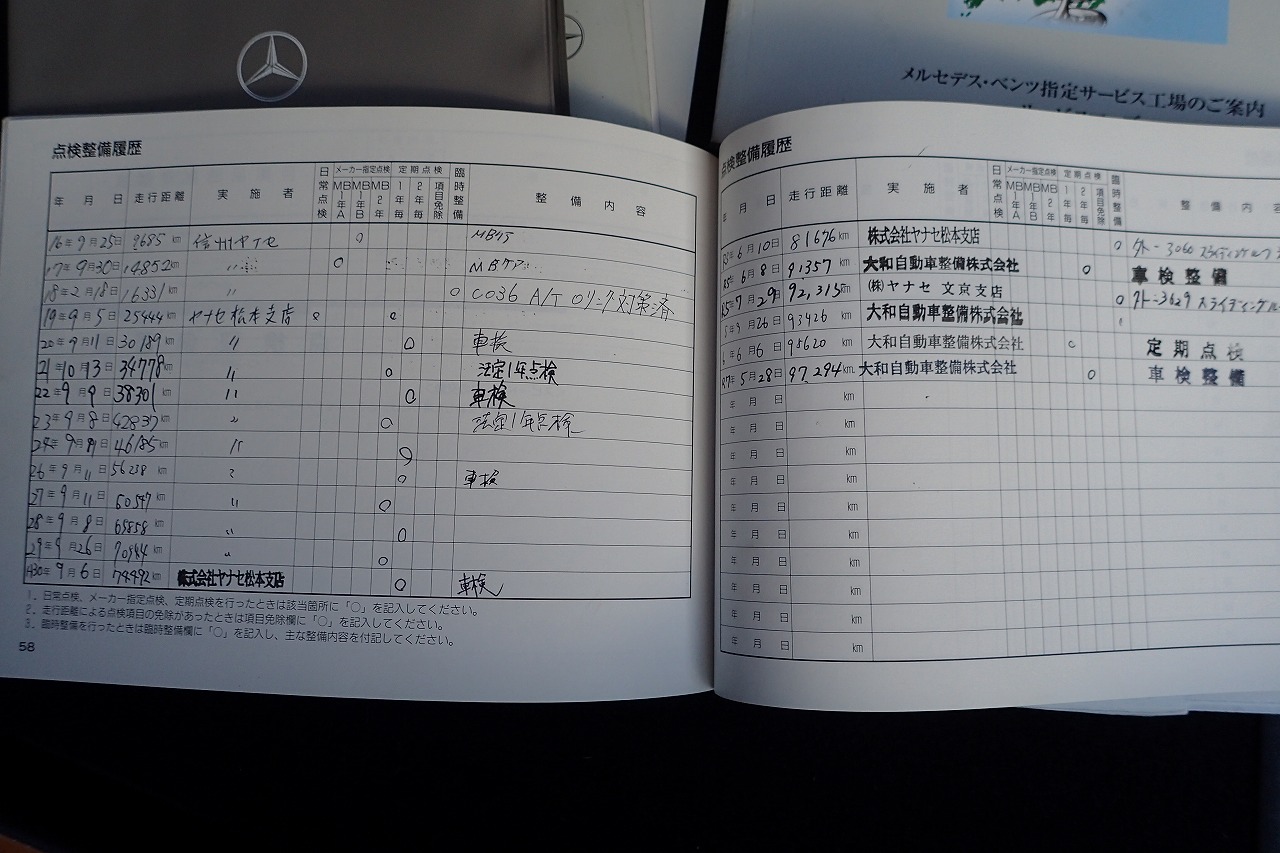 メルセデス・ベンツ指定サービス工場のご案内
点検整備履歴
年 月 日 走行距離 実施者 日常点検 メーカー指定点検 MB1年A MB1年B MB2年 定期点検 1年毎 2年毎 項目免除 臨時整備 整備内容
16年9月25日 9685km 信州ヤナセ ○
17年9月30日 14852km 〃 ○ MBケア
18年2月18日 16331km 〃 ○ C036 A/T Oリング対策済
19年9月5日 25444km ヤナセ松本支店 ○ ○
20年9月11日 30189km 〃 ○ 車検
21年10月13日 34778km 〃 ○ 法定1年点検
22年9月9日 38301km 〃 ○ 車検
23年9月8日 42837km 〃 ○ 法定1年点検
24年9月 日 46185km 〃 ○
26年9月11日 56238km 〃 ○ 車検
27年9月11日 60547km 〃 ○
28年9月8日 65858km 〃 ○
29年9月26日 70944km 〃 ○
H30年9月6日 74492km 株式会社ヤナセ松本支店 ○ 車検
1．日常点検、メーカー指定点検、定期点検を行ったときは該当箇所に「○」を記入してください。
2．走行距離による点検項目の免除があったときは項目免除欄に「○」を記入してください。
3．臨時整備を行ったときは臨時整備欄に「○」を記入し、主な整備内容を付記してください。
58
点検整備履歴
年 月 日 走行距離 実施者 日常点検 メーカー指定点検 MB1年A MB1年B MB2年 定期点検 1年毎 2年毎 項目免除 臨時整備 整備内容
年6月10日 81676km 株式会社ヤナセ松本支店 ○
R5年6月8日 91357km 大和自動車整備株式会社 ○ 車検整備
R5年7月29日 92,315km (株)ヤナセ 文京支店 ○
5年9月26日 93426km 大和自動車整備株式会社
6年6月6日 95620km 大和自動車整備株式会社 ○ 定期点検
R7年5月28日 97,294km 大和自動車整備株式会社 ○ 車検整備
年 月 日 km
年 月 日 km
年 月 日 km
年 月 日 km
年 月 日 km
年 月 日 km
年 月 日 km
年 月 日 km
年 月 日 km
年 月 日 km